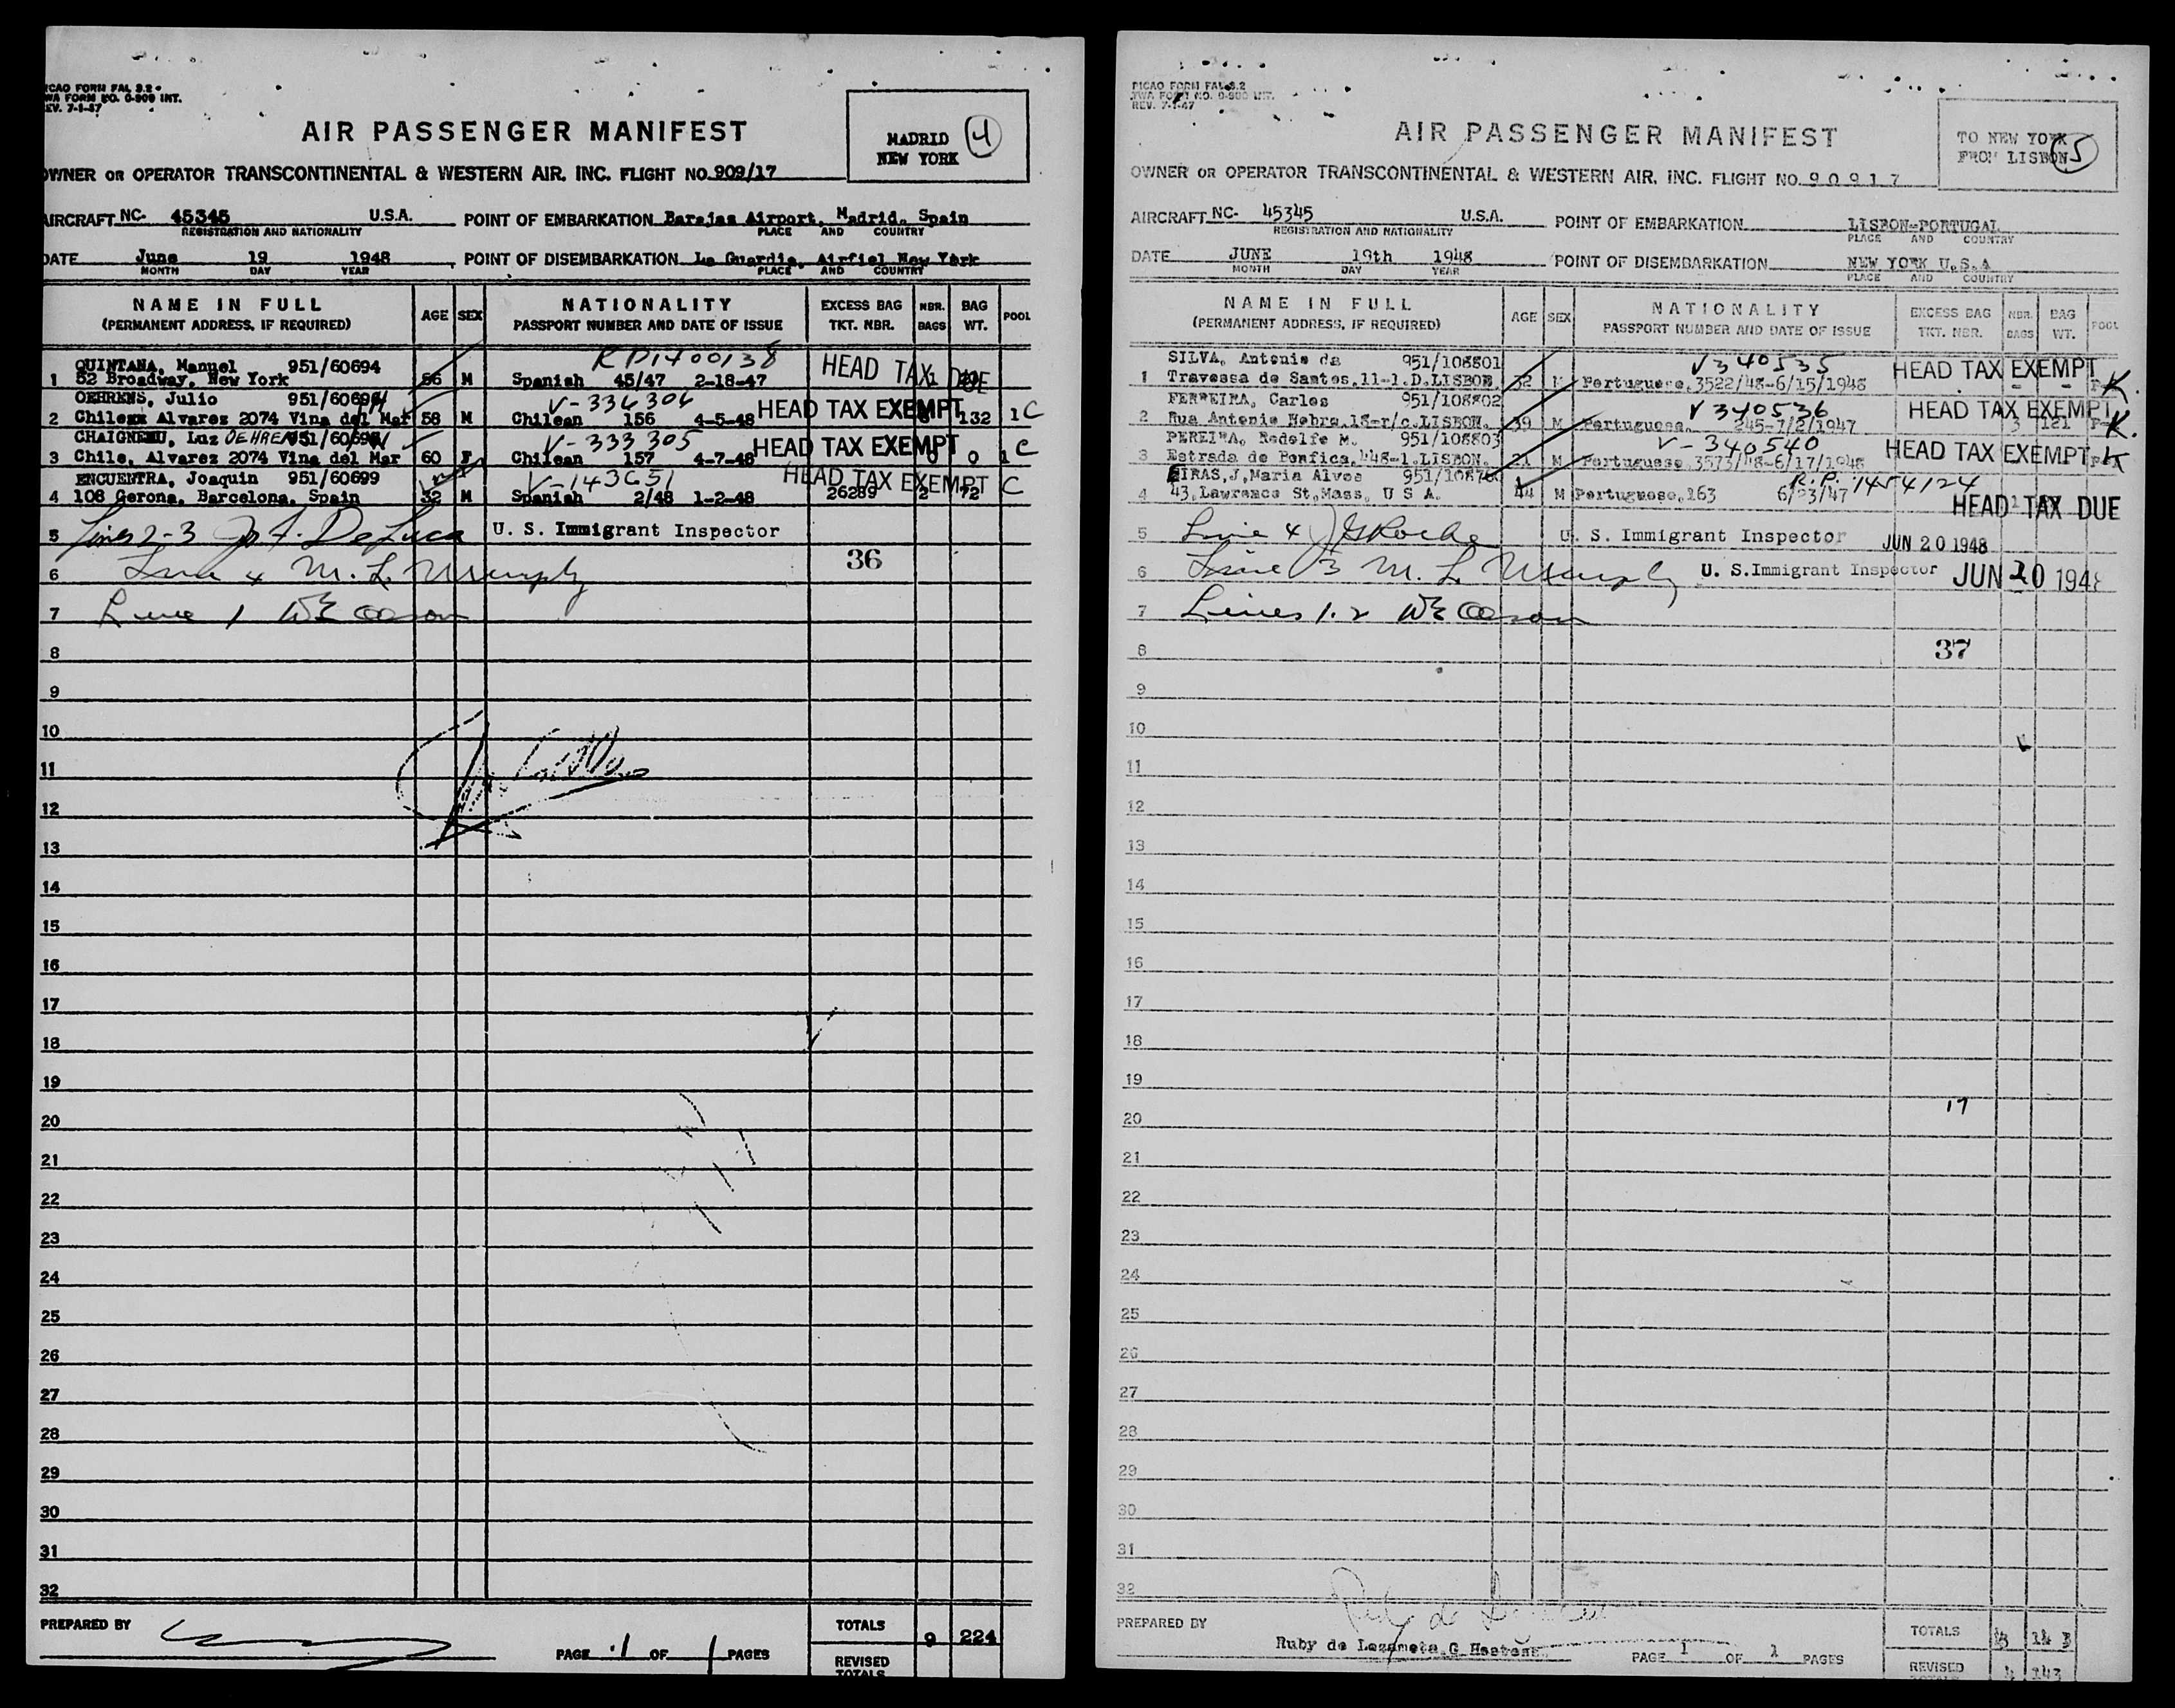 ICAO FORM FAL 3.2
WA FORM NO. O-909 INT.
EV. 7-1-47
AIR PASSENGER MANIFEST
MADRID
NEW YORK
4
OWNER OR OPERATOR TRANSCONTINENTAL & WESTERN AIR, INC. FLIGHT NO. 909/17
AIRCRAFT NC- 45345 U.S.A. POINT OF EMBARKATION Barajas Airport, Madrid, Spain
REGISTRATION AND NATIONALITY PLACE AND COUNTRY
DATE June 19 1948 POINT OF DISEMBARKATION La Guardia, Airfiel New York
MONTH DAY YEAR PLACE AND COUNTRY
NAME IN FULL AGE SEX NATIONALITY EXCESS BAG NBR. BAG POOL
(PERMANENT ADDRESS, IF REQUIRED) PASSPORT NUMBER AND DATE OF ISSUE TKT. NBR. BAGS WT.
QUINTANA, Manuel 951/60694 RP1400138 HEAD TAX DUE
1 52 Broadway, New York 56 M Spanish 45/47 2-18-47
OEHRENS, Julio V-334304 HEAD TAX EXEMPT
2 Chilexx Alvarez 2074 Vina del Mar 58 M Chilean 156 4-5-48 132 1 C
CHAIGNEAU, Luz OEHRENS V-333305 HEAD TAX EXEMPT
3 Chile, Alvarez 2074 Vina del Mar 60 F Chilean 157 4-7-48 0 0 1 C
ENCUENTRA, Joaquin 951/60699 V-143651 HEAD TAX EXEMPT C
4 108 Gerona, Barcelona, Spain 32 M Spanish 2/48 1-2-48 26289 2 72
5 Lines 2-3 Jos. A. DeLuca U. S. Immigrant Inspector
36
6 Line 4 M. L. Murphy
7 Line 1
8
9
10
11
12
13
14
15
16
17
18
19
20
21
22
23
24
25
26
27
28
29
30
31
32
PREPARED BY TOTALS 9 224
PAGE 1 OF 1 PAGES
REVISED
TOTALS
PICAO FORM FAL 3.2
TWA FORM NO. O-909 INT.
REV. 7-1-47
AIR PASSENGER MANIFEST
TO NEW YORK
FROM LISBON
5
OWNER OR OPERATOR TRANSCONTINENTAL & WESTERN AIR, INC. FLIGHT NO. 90917
AIRCRAFT NC- 45345 U.S.A. POINT OF EMBARKATION LISBON-PORTUGAL
REGISTRATION AND NATIONALITY PLACE AND COUNTRY
DATE JUNE 19th 1948 POINT OF DISEMBARKATION NEW YORK U.S.A
MONTH DAY YEAR PLACE AND COUNTRY
NAME IN FULL AGE SEX NATIONALITY EXCESS BAG NBR. BAG POOL
(PERMANENT ADDRESS, IF REQUIRED) PASSPORT NUMBER AND DATE OF ISSUE TKT. NBR. BAGS WT.
SILVA, Antonio da 951/108801 V340535 HEAD TAX EXEMPT
1 Travessa de Santos,11-1.D.LISBON. 32 M Portuguese,3522/48-6/15/1948 - - K
FERREIRA, Carlos 951/108802 V340536 HEAD TAX EXEMPT
2 Rua Antonio Nobre,18-r/c.LISBON. 39 M Portuguesa. 245-7/2/1947 3 121 K.
PEREIRA, Rodolfo M. 951/108803 V-340540 HEAD TAX EXEMPT
3 Estrada de Benfica,448-1.LISBON. 21 M Portuguese 3573/48-6/17/1948 K
EIRAS,J,Maria Alves R.P. 1454124
4 43,Lawrence St,Mass, U S A. 44 M Portuguese,163 6/23/47 HEAD TAX DUE
5 Line 4 J G Roche U. S. Immigrant Inspector JUN 20 1948
6 Line 3 M. L. Murphy U. S. Immigrant Inspector JUN 20 1948
7 Lines 1.2
8 37
9
10
11
12
13
14
15
16
17
18
19
20 17
21
22
23
24
25
26
27
28
29
30
31
32
PREPARED BY TOTALS 143
PAGE 1 OF 1 PAGES
REVISED 4 143